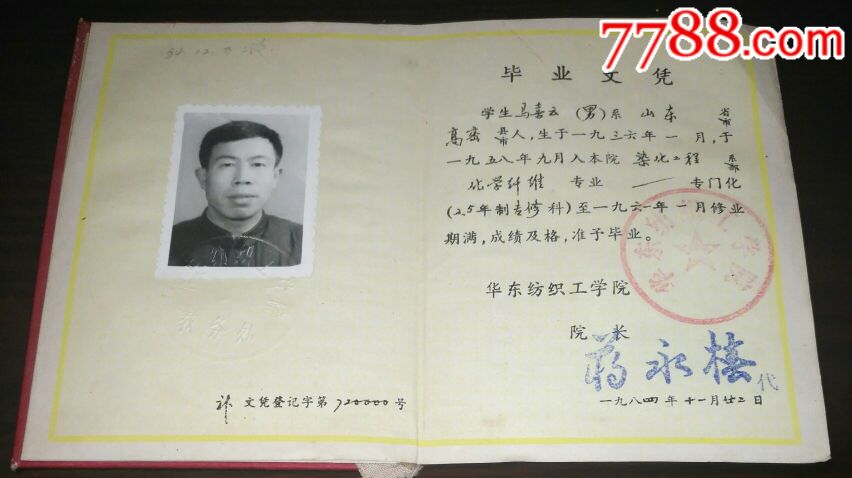 7788.com
84.12.
毕业文凭
学生马喜云(男)系山东省市
高密县市人,生于一九三六年一月,于
一九五八年九月入本院染化工程系部
化学纤维专业——专门化
(2.5年制专修科)至一九六一年一月修业
期满,成绩及格,准予毕业。
华东纺织工学院
院长
蒋永椿代
一九八四年十一月廿三日
补文凭登记字第720000号
华东纺织工学院
教务处